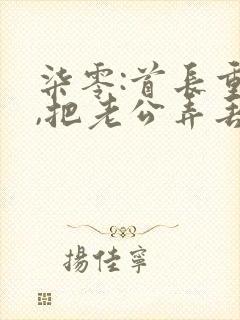 柒零:首長重
,把老公弄丟
揚佳寧